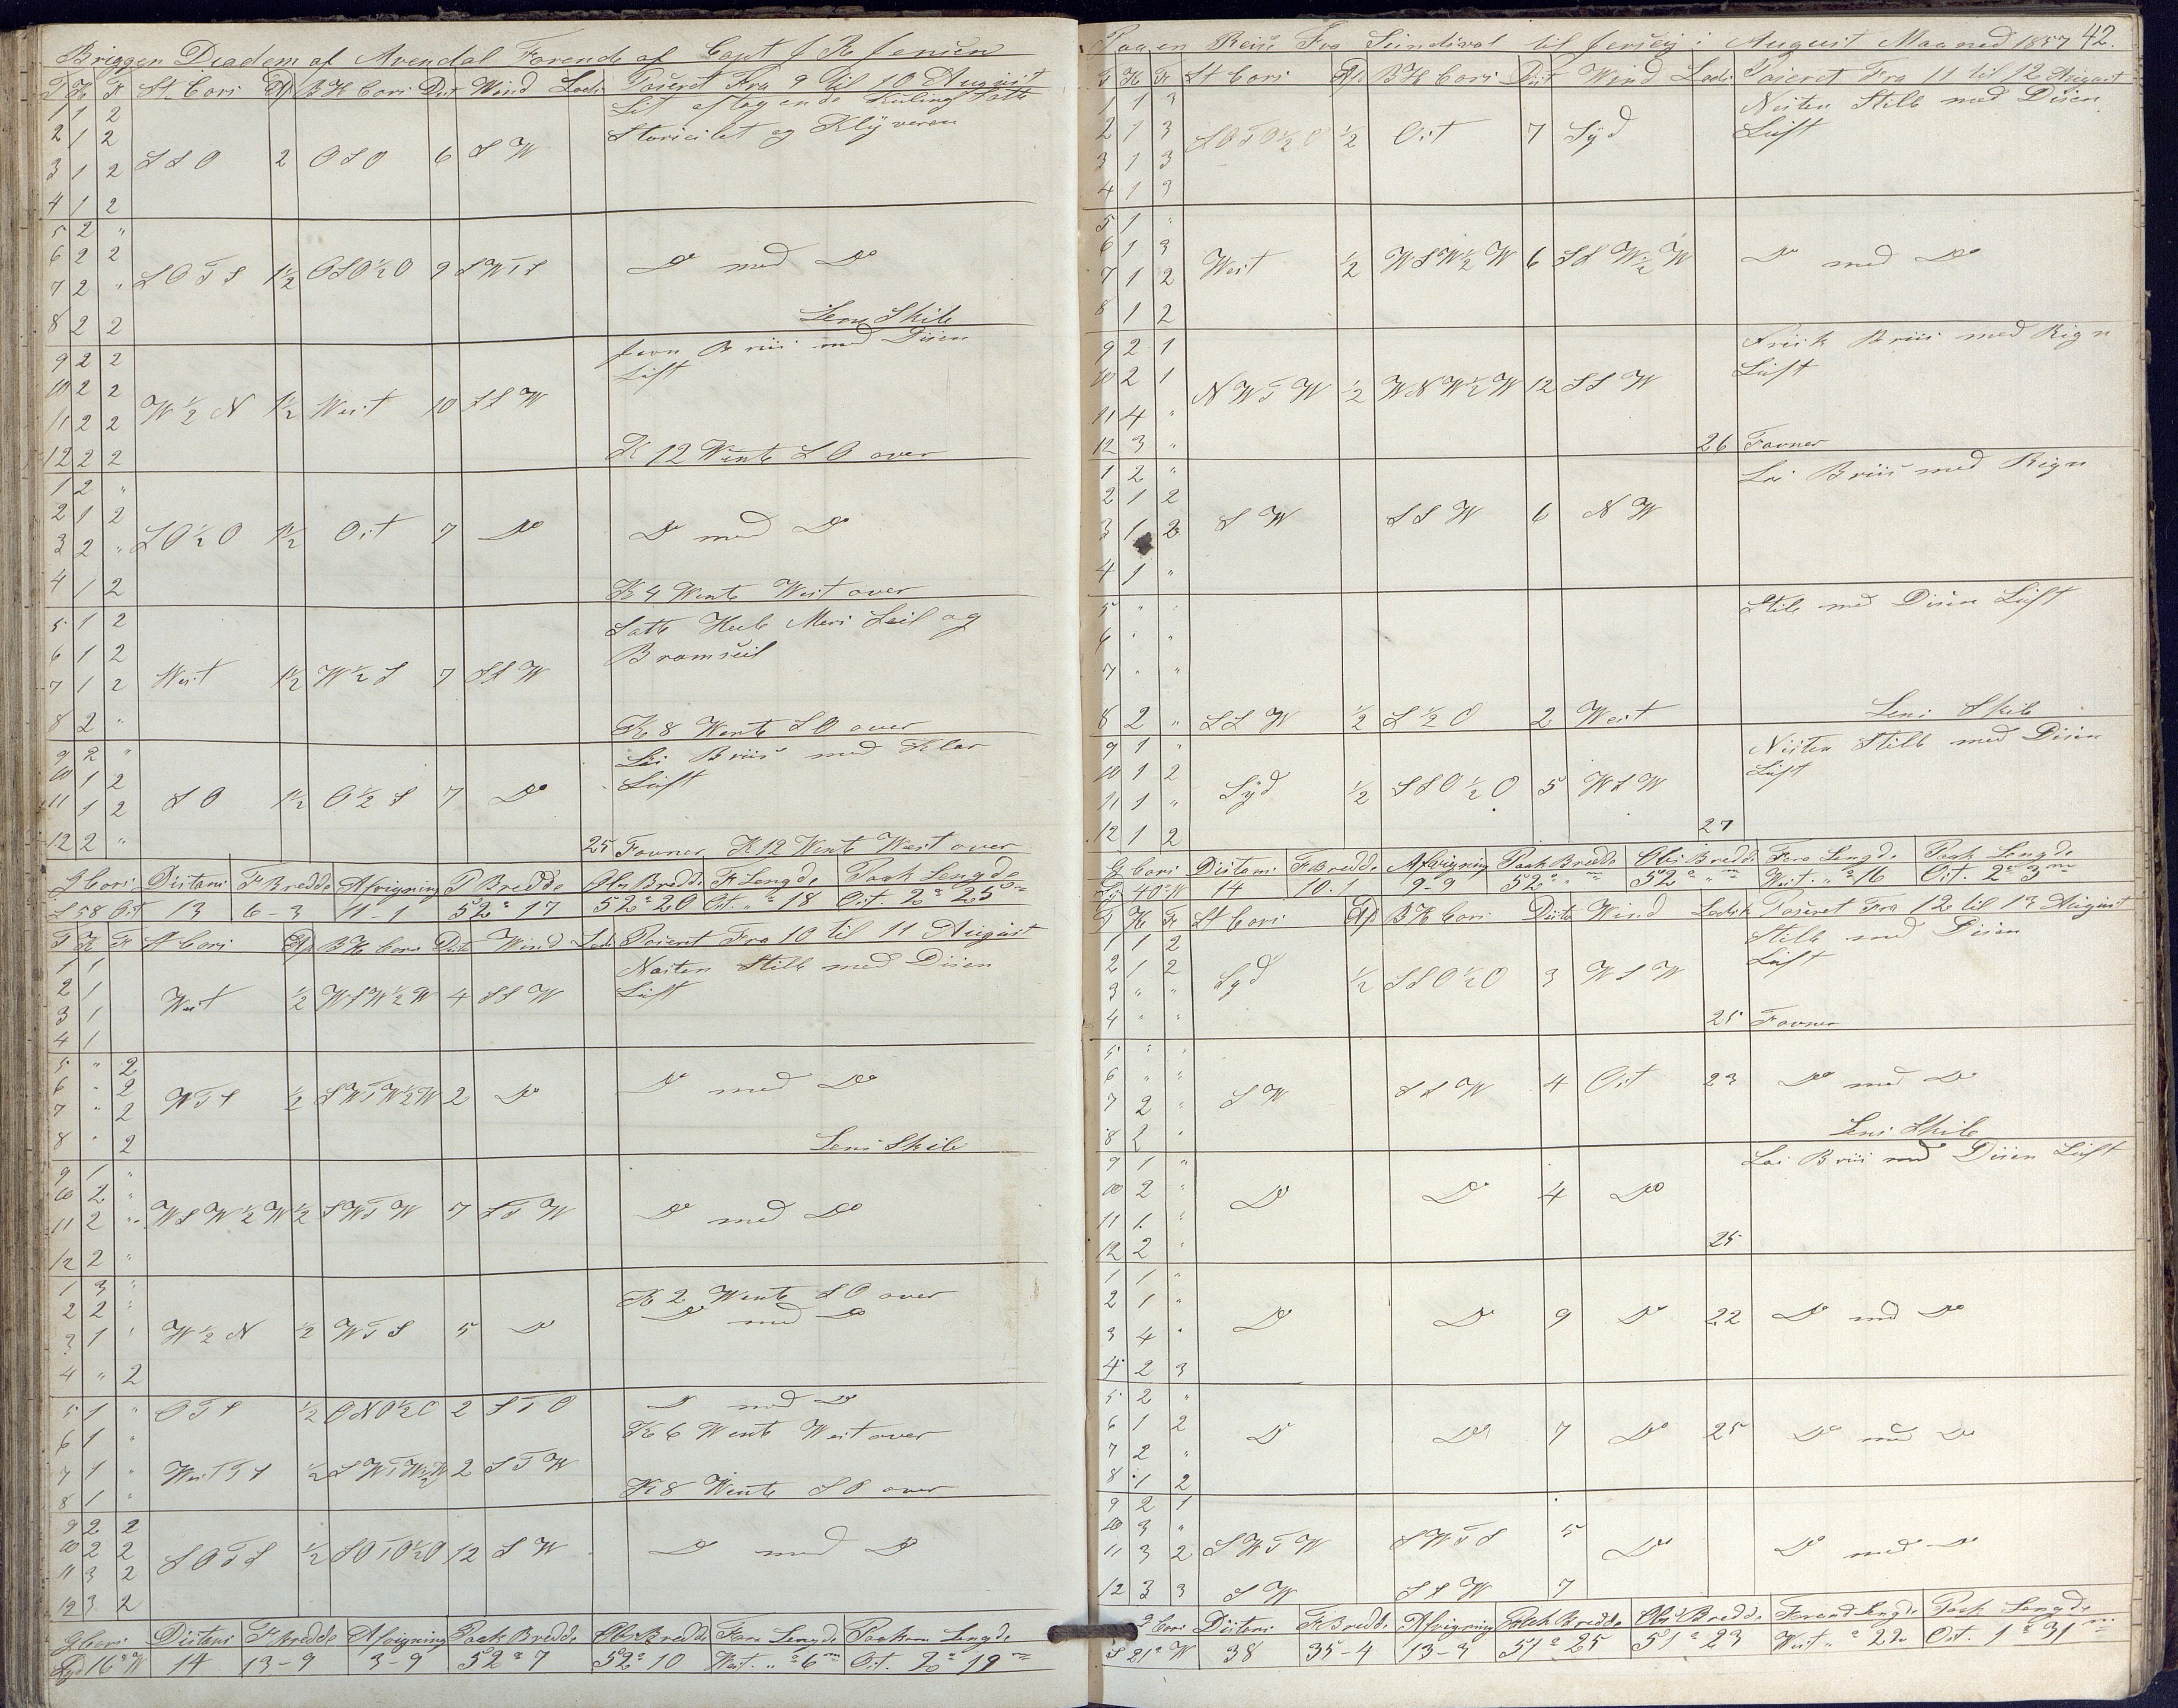 Briggen Diadem af Arendal Førende af Capt J R Jensen
T K F St Cors Afd B H Cors Dist Wind Lodi Paseret Fra 9 til 10 August
1 1 2 Lit aftagende Kuling Satte
2 1 2 Storseilet og Klyveren
3 1 2 S S O 2 O S O 6 S W
4 1 2
5 2 "
6 2 2
7 2 " S O T S 1½ O S O ½ O 9 S W T S Do med Do
8 2 2 Lens Skib
9 2 2 Jevn Briis med Diisen
10 2 2 Luft
11 2 2 W ½ N 1½ West 10 S S W
12 2 2 K 12 Wente S O over
1 2 "
2 1 2
3 2 " S O ½ O 1½ Ost 7 Do Do med Do
4 1 2 K 4 Wente West over
5 1 2 Satte Heele Mers Seil og
6 1 2 Bramseil
7 1 2 West 1½ W ½ S 7 S S W
8 2 " K 8 Wente S O over
9 2 " Lai Briis med Klar
10 1 2 Luft
11 1 2 S O 1½ O ½ S 7 Do
12 2 " 25 Favner K 12 Wente West over
G Cors Distans F Bredde Afvigning P Bredde Obs Bredde F Lengde Paak Lengde
S 58 Ost 13 6-3 11-1 52° 17 52° 20 Ost. " ° 18 Ost. 2° 25 m
T K F St Cors Afd B H Cors Dist Wind Lodi Paseret Fra 10 til 11 August
1 1 Næsten Stille med Diisen
2 1 West ½ W S W ½ W 4 S S W Luft
3 1
4 1
5 " 2
6 " 2
7 " 2 W T S ½ S W T W ½ W 2 Do Do med Do
8 " 2 Lens Skib
9 1 "
10 2 "
11 2 " W S W ½ W ½ S W T W 7 S T W Do med Do
12 2 "
1 3 " K 2 Wente S O over
2 2 " Do med Do
3 1 " W ½ N ½ W T S 5 Do
4 " 2
5 1 " O T S ½ O N O ½ O 2 S T O Do med Do
6 1 " K 6 Wente West over
7 1 " West T S ½ S W T W ½ W 2 S T W
8 1 " K 8 Wente S O over
9 2 2
10 2 2
11 3 2 S O T S ½ S O T O ½ O 12 S W Do med Do
12 3 2
G Cors Distans F Bredde Afvigning Paak Bredde Obs Bredde Fora Lengde Paakom Lengde
Syd 16° W 14 13-9 3-9 52° 7 52° 10 West. " ° 6 m Ost. 2° 19 m
Paa en Reise Fra Sundsval til Jersey i August Maaned 1857 42.
T K F St Cors Afd B H Cors Dist Wind Lodi Paseret Fra 11 til 12 August
1 1 3 Nesten Stille med Diisen
2 1 3 S O T O ½ O ½ Ost 7 Syd Luft
3 1 3
4 1 3
5 1 "
6 1 3
7 1 2 West ½ W S W ½ W 6 S S W ½ W Do med Do
8 1 2
9 2 1 Frisk Briis med Rign
10 2 1 Luft
11 4 " N W T W ½ W N W ½ W 12 S S W
12 3 " 26 Favner
1 2 " Lai Briis med Rign
2 1 2
3 1 2 S W S S W 6 N W
4 1 "
5 " " Stile med Diisen Luft
6 " "
7 " "
8 2 " S S W ½ S ½ O 2 West Lens Skib
9 1 " Nesten Stille med Diisen
10 1 2 Luft
11 1 " Syd ½ S S O ½ O 5 W S W
12 1 2 27
G Cors Distans F Bredde Afvigning Paak Bredde Obs Bredde Fora Lengde Paak Lengde
Syd 40° W 14 10. 1 9-9 52° " m 52° " m West. " ° 16 Ost. 2° 3 m
T K F St Cors Afd B H Cors Dist Wind Lodi Paseret Fra 12 til 13 August
1 1 2 Stille med Diisen
2 1 2 Syd ½ S S O ½ O 3 W S W Luft
3 " "
4 " " 25 Favner
5 " "
6 " "
7 2 " S W S S W 4 Ost 23 Do med Do
8 2 " Lens Skib
9 1 " Lai Briis med Diisen Luft
10 2 " Do Do 4 Do
11 1 "
12 2 " 25
1 1 "
2 1 "
3 4 " Do Do 9 Do 22 Do med Do
4 2 3
5 2 "
6 1 2 Do Do 7 Do 25 Do med Do
7 2 "
8 1 2
9 2 1
10 3 "
11 3 2 S W T W S W T S 5 Do Do med Do
12 3 3 S W S S W 7
G Cors Distans F Bredde Afvigning Paak Bredde Obs Bredde Forand Lengde Paak Lengde
S 21° W 38 35-4 13-3 51° 25 51° 23 West " ° 22 Ost. 1° 31 m